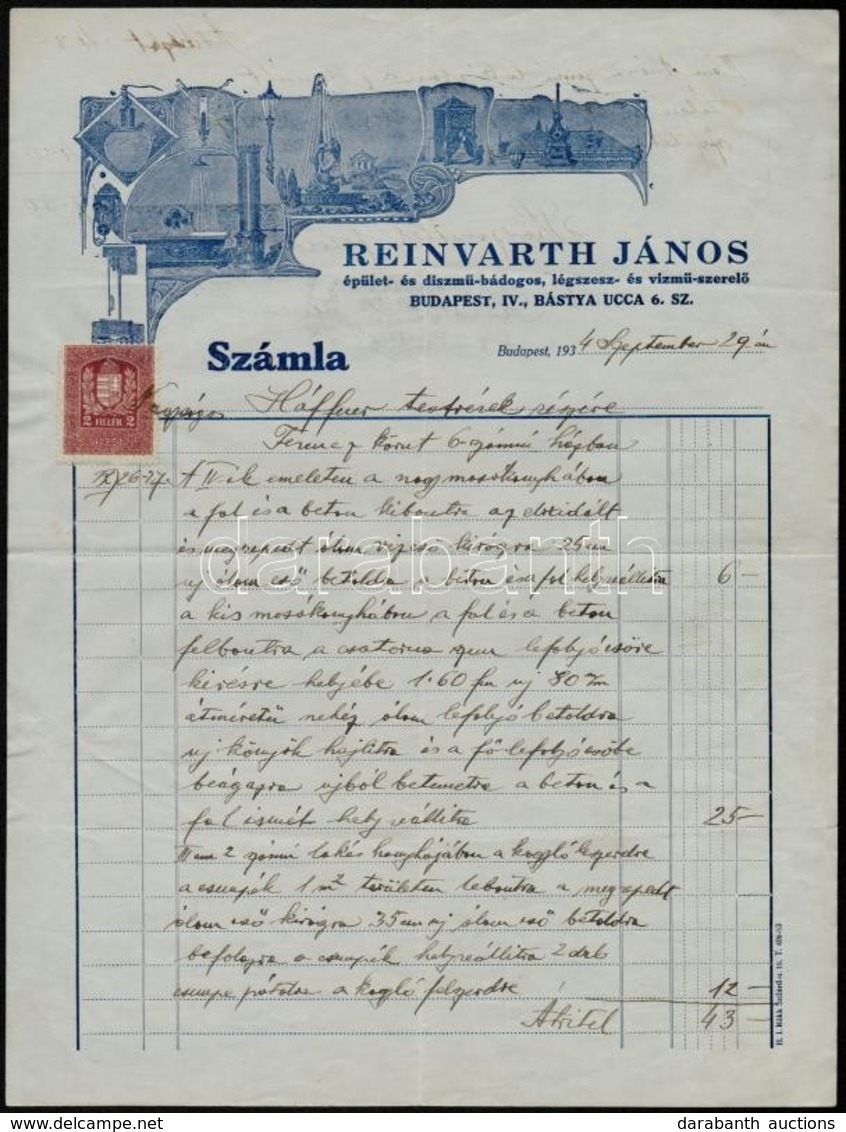 REINVARTH JÁNOS
épület- és diszmü-bádogos, légszesz- és vizmü-szerelő
BUDAPEST, IV., BÁSTYA UCCA 6. SZ.
Számla
Budapest, 1934 Szeptember 29 én
2 FILLÉR 2
Háffner testvérek részére
Ferencz körut 6-számú házban
IX/26-27. A IV-ik emeleten a nagy mosókonyhában
a fal és a beton kibontva az eloxidált
és megrepedt ólom vizcső kivágva 25 cm
uj ólom cső betoldva a beton és a fal helyreállitva 6 —
a kis mosókonyhában a fal és a beton
felbontva a csatorna lefolyócsöve
kivésve helyébe 1·60 fm uj 80 m/m
átméretü nehéz ólom lefolyó betoldva
uj könyök hajlitva és a fő lefolyócsőbe
beágazva ujból betemetve a beton és a
fal ismét helyreállitva 25 —
III em 2 számú lakás konyhájában a kagyló leszerelve
a csempék 1 m² területen lebontva a megrepedt
ólom cső kivágva 35 cm uj ólom cső betoldva
befalazva a csempék helyreállitva 2 drb
csempe pótolva a kagyló felszerelve 12 —
Átvitel 43 —
darabanth
H. I. Rákk Szilárd-u. 10. T. 408-83
darabanth auctions